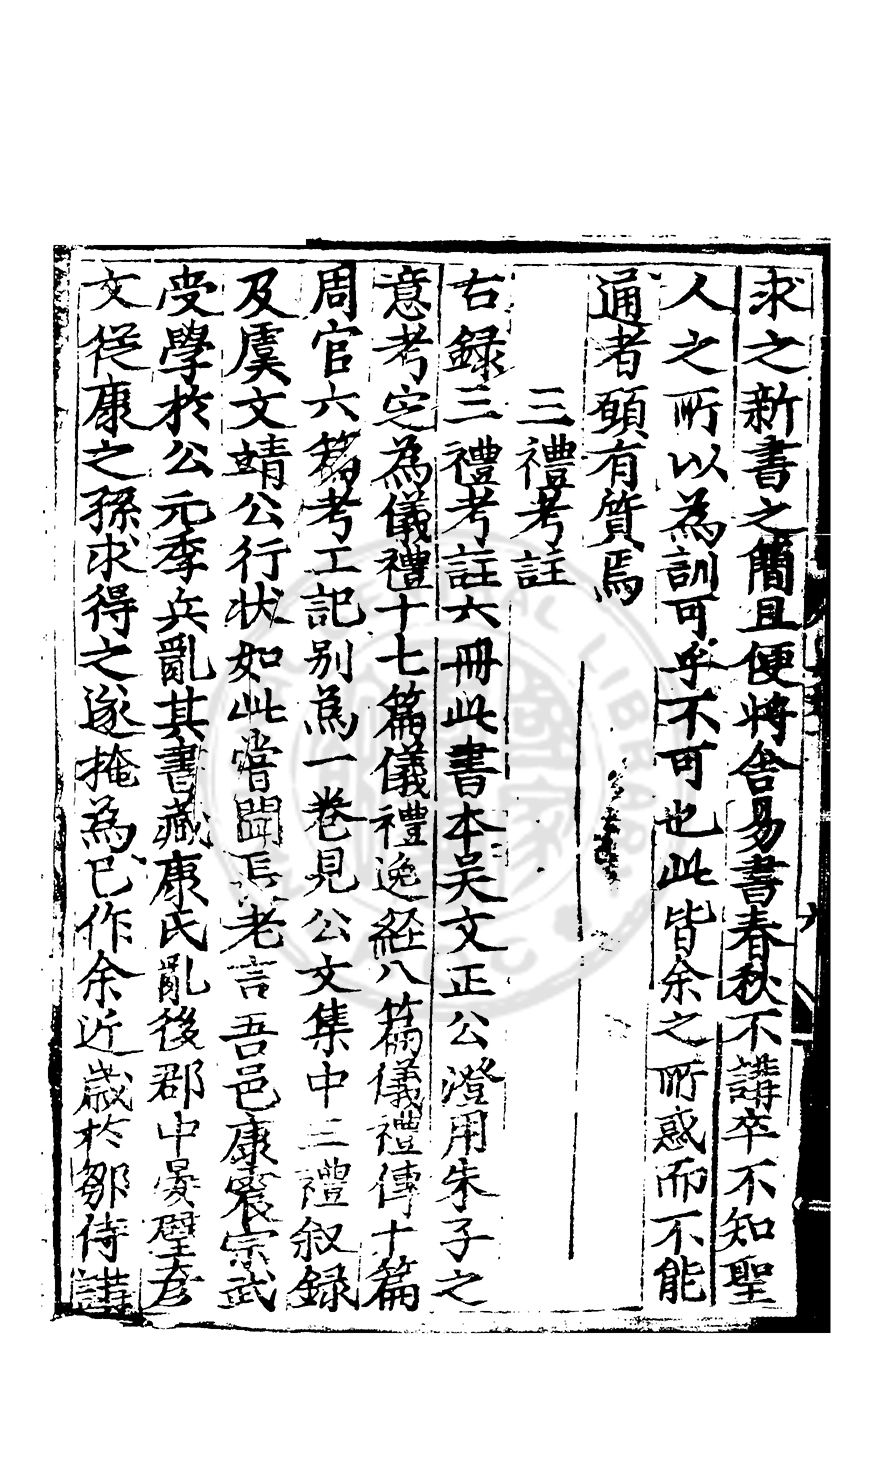 求之新書之簡且便將舍易書春秋不講卒不知聖
人之所以為訓可乎不可也此皆余之所惑而不能
通者願有質焉
三禮考註
右録三禮考註六冊此書本吴文正公澄用朱子之
意考定為儀禮十七篇儀禮逸經八篇儀禮傳十篇
周官六篇考工記别為一卷見公文集中三禮叙録
及虞文靖公行状如此嘗聞長老言吾邑康震宗武
受學於公元季兵亂其書藏康氏亂後郡中晏璧彦
文從康之孫求得之遂掩為已作余近歲於鄒侍講